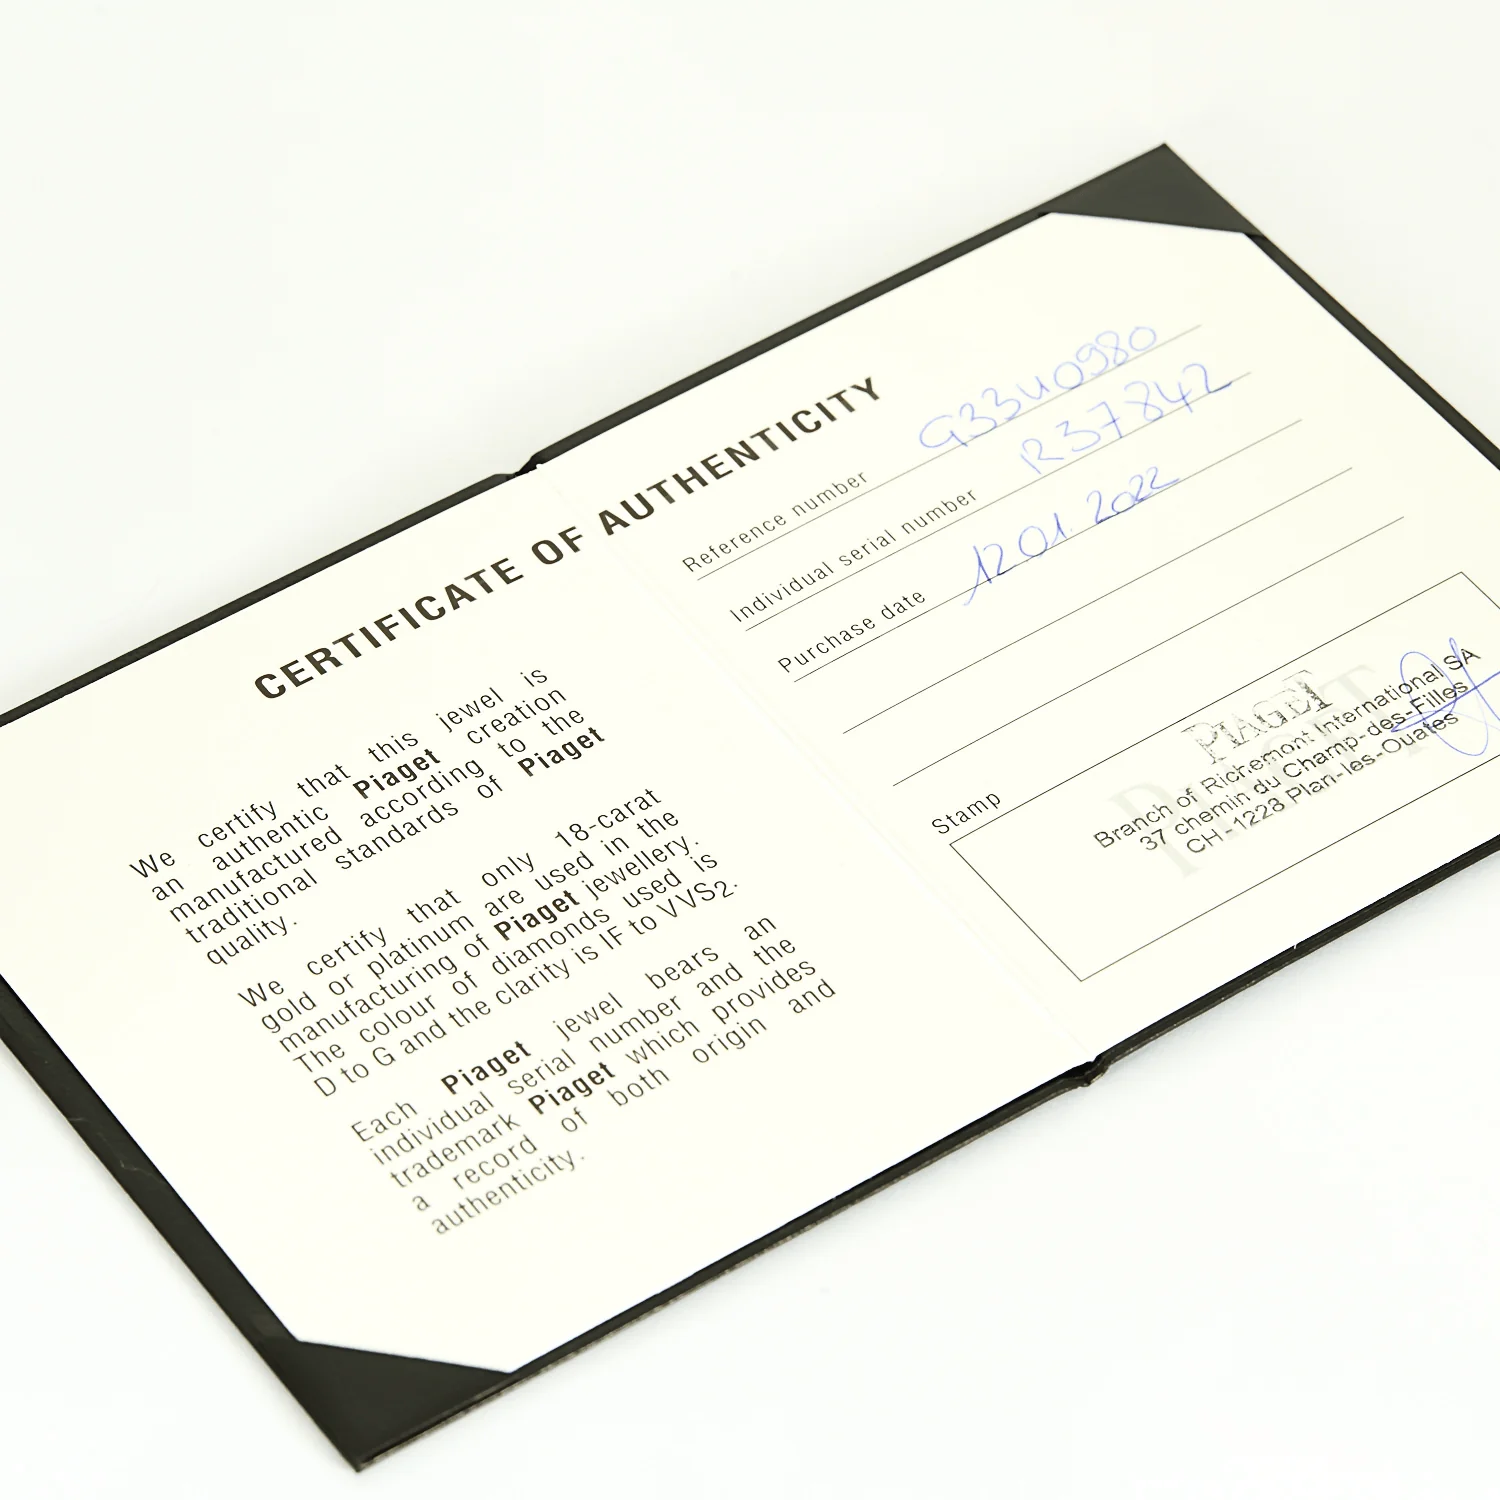 CERTIFICATE OF AUTHENTICITY
We certify that this jewel is
an authentic Piaget creation
manufactured according to the
traditional standards of Piaget
quality.
We certify that only 18-carat
gold or platinum are used in the
manufacturing of Piaget jewellery.
The colour of diamonds used is
D to G and the clarity is IF to VVS2.
Each Piaget jewel bears an
individual serial number and the
trademark Piaget which provides
a record of both origin and
authenticity.
Reference number G33U0980
Individual serial number R37842
Purchase date 12.01.2022
Stamp
PIAGET
PIAGET
Branch of Richemont International SA
37 chemin du Champ-des-Filles
CH-1228 Plan-les-Ouates